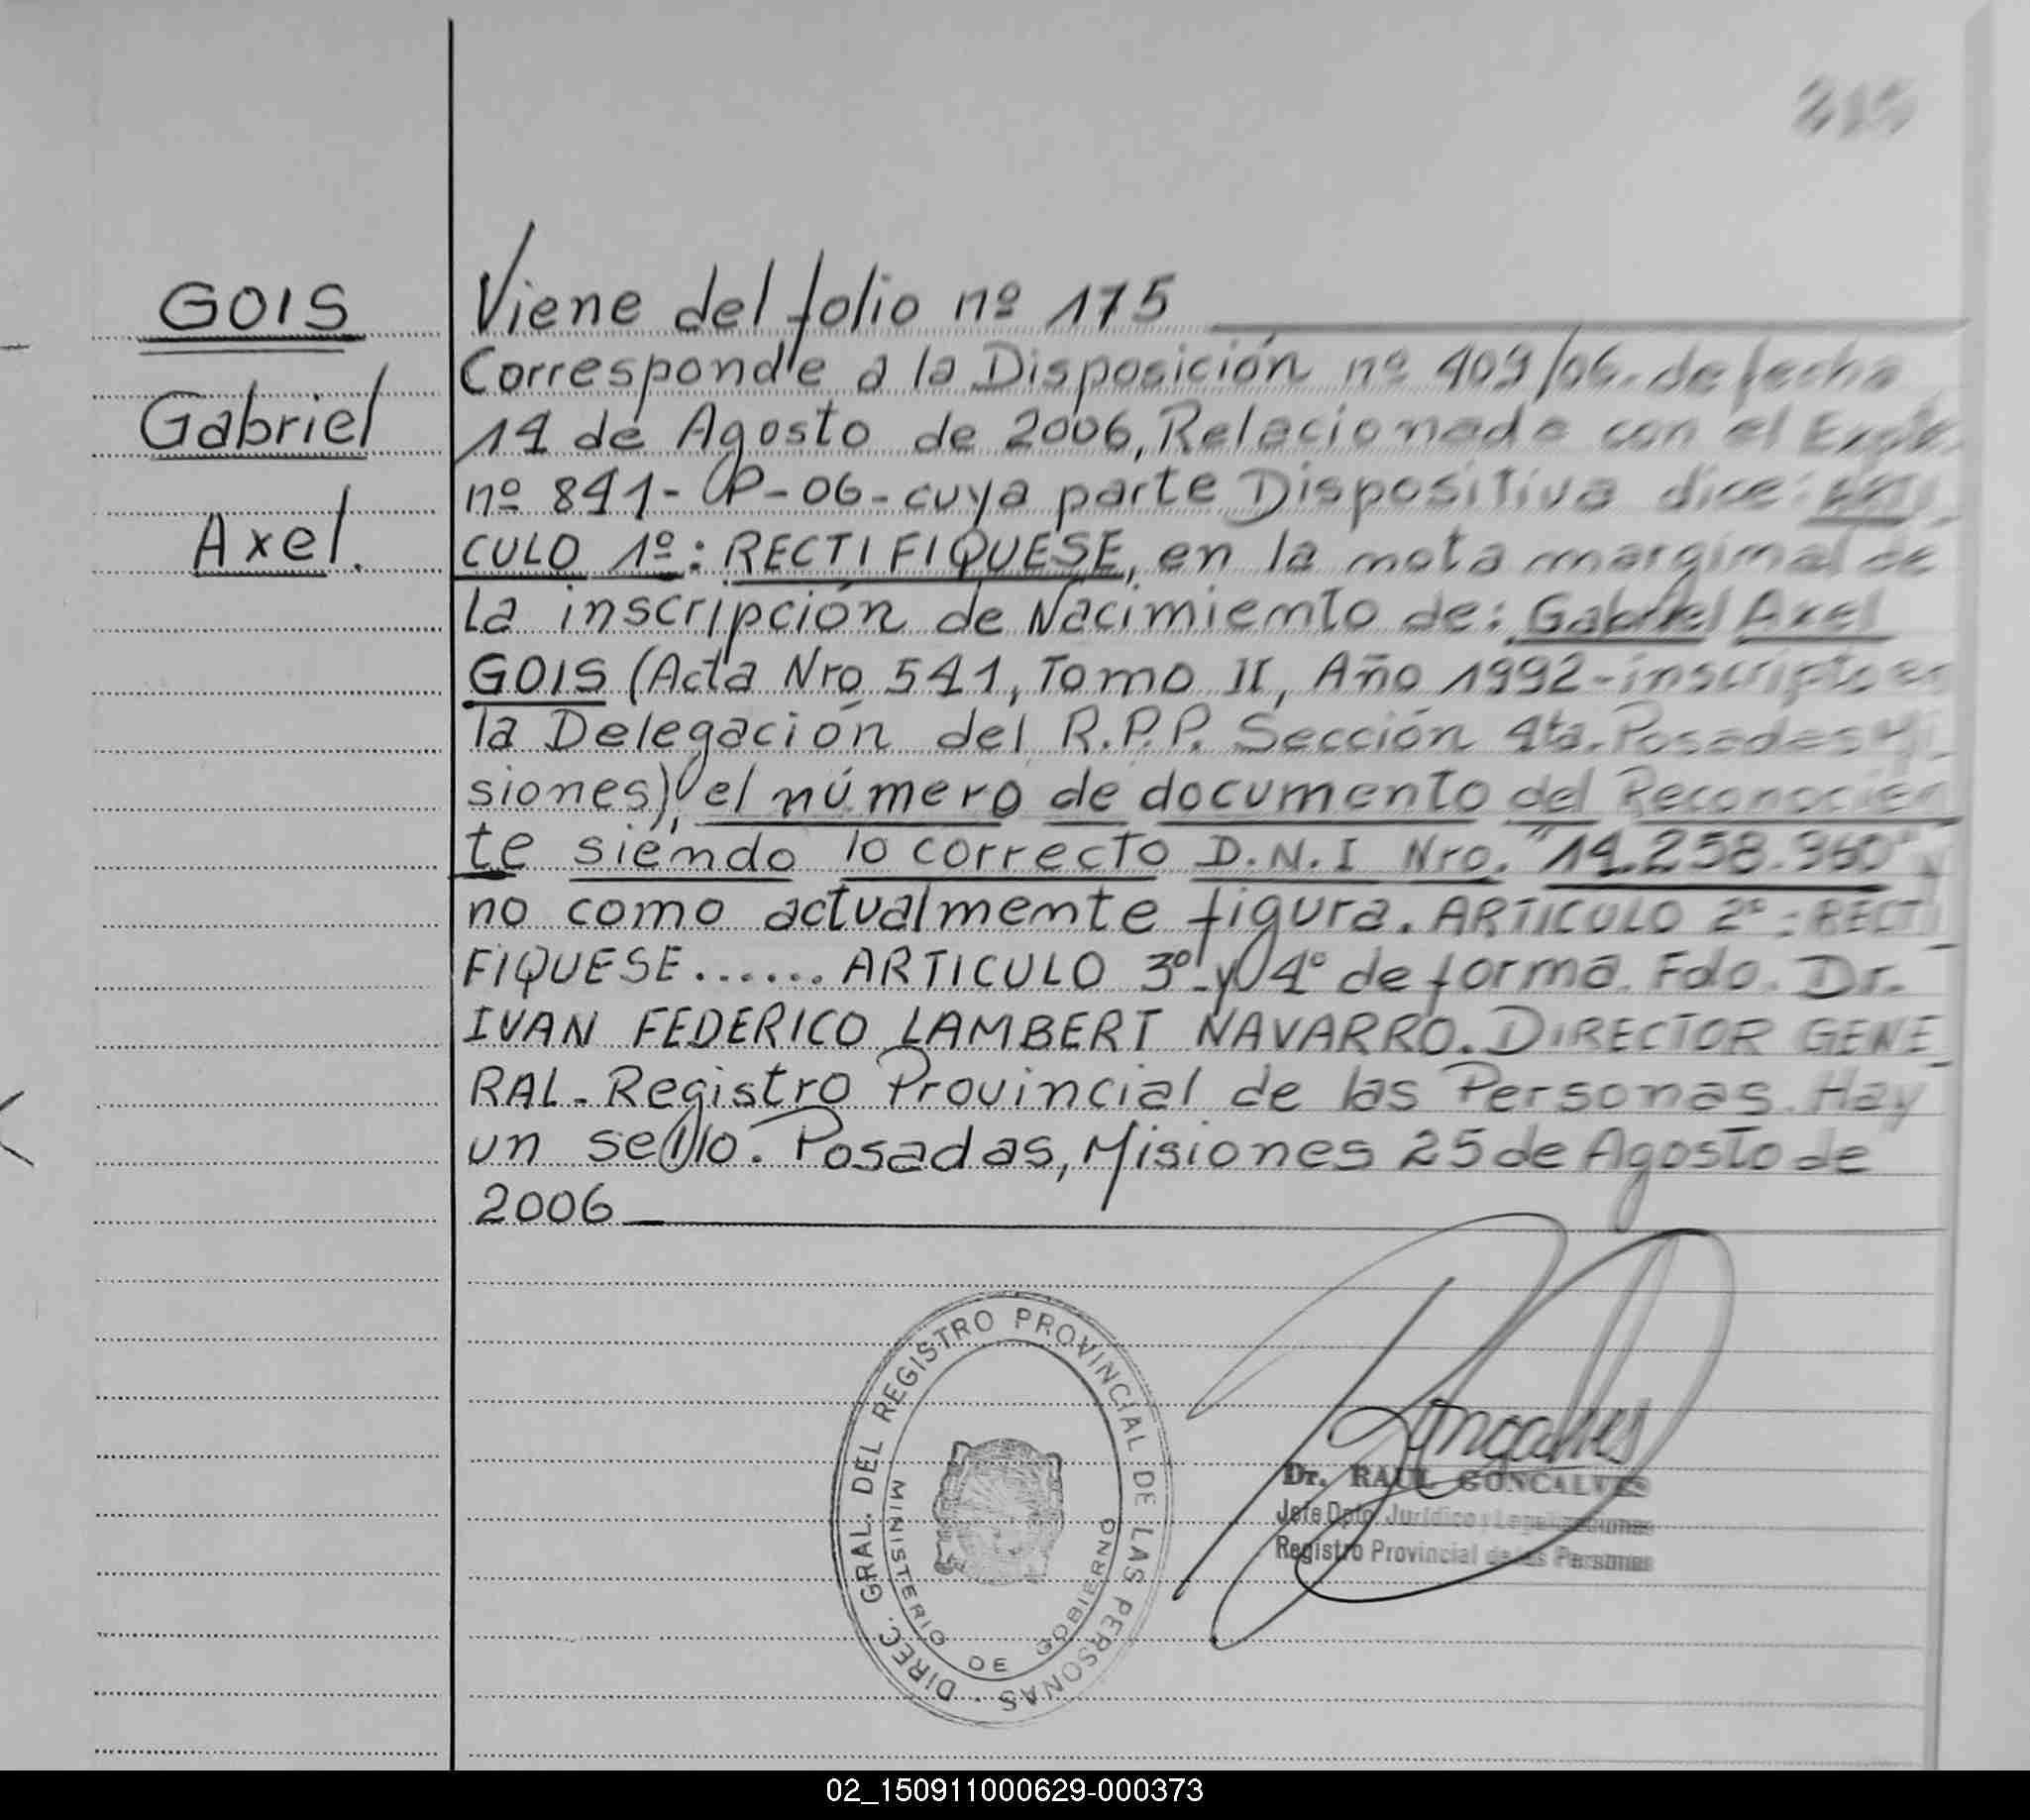 GOIS
Gabriel
Axel.
Viene del folio nº 175
Corresponde a la Disposición nº 409/06. de fecha
14 de Agosto de 2006, Relacionado con el Expte.
nº 841-P-06-cuya parte Dispositiva dice: ARTI_
CULO 1º: RECTIFIQUESE, en la nota marginal de
la inscripción de Nacimiento de: Gabriel Axel
GOIS (Acta Nro 541, Tomo II, Año 1992-inscripto en
la Delegación del R.P.P. Sección 4ta. Posadas Mi_
siones), el número de documento del Reconocien
te siendo lo correcto D.N.I Nro. "14.258.960" y
no como actualmente figura. ARTICULO 2º: RECTI_
FIQUESE...... ARTICULO 3º y 4º de forma. Fdo. Dr.
IVAN FEDERICO LAMBERT NAVARRO. DIRECTOR GENE_
RAL- Registro Provincial de las Personas. Hay
un sello. Posadas, Misiones 25 de Agosto de
2006
DIREC. GRAL. DEL REGISTRO PROVINCIAL DE LAS PERSONAS
MINISTERIO DE GOBIERNO
Goncalves
Dr. RAUL GONCALVES
Jefe Dpto. Jurídico y Legalizaciones
Registro Provincial de las Personas
02_150911000629-000373